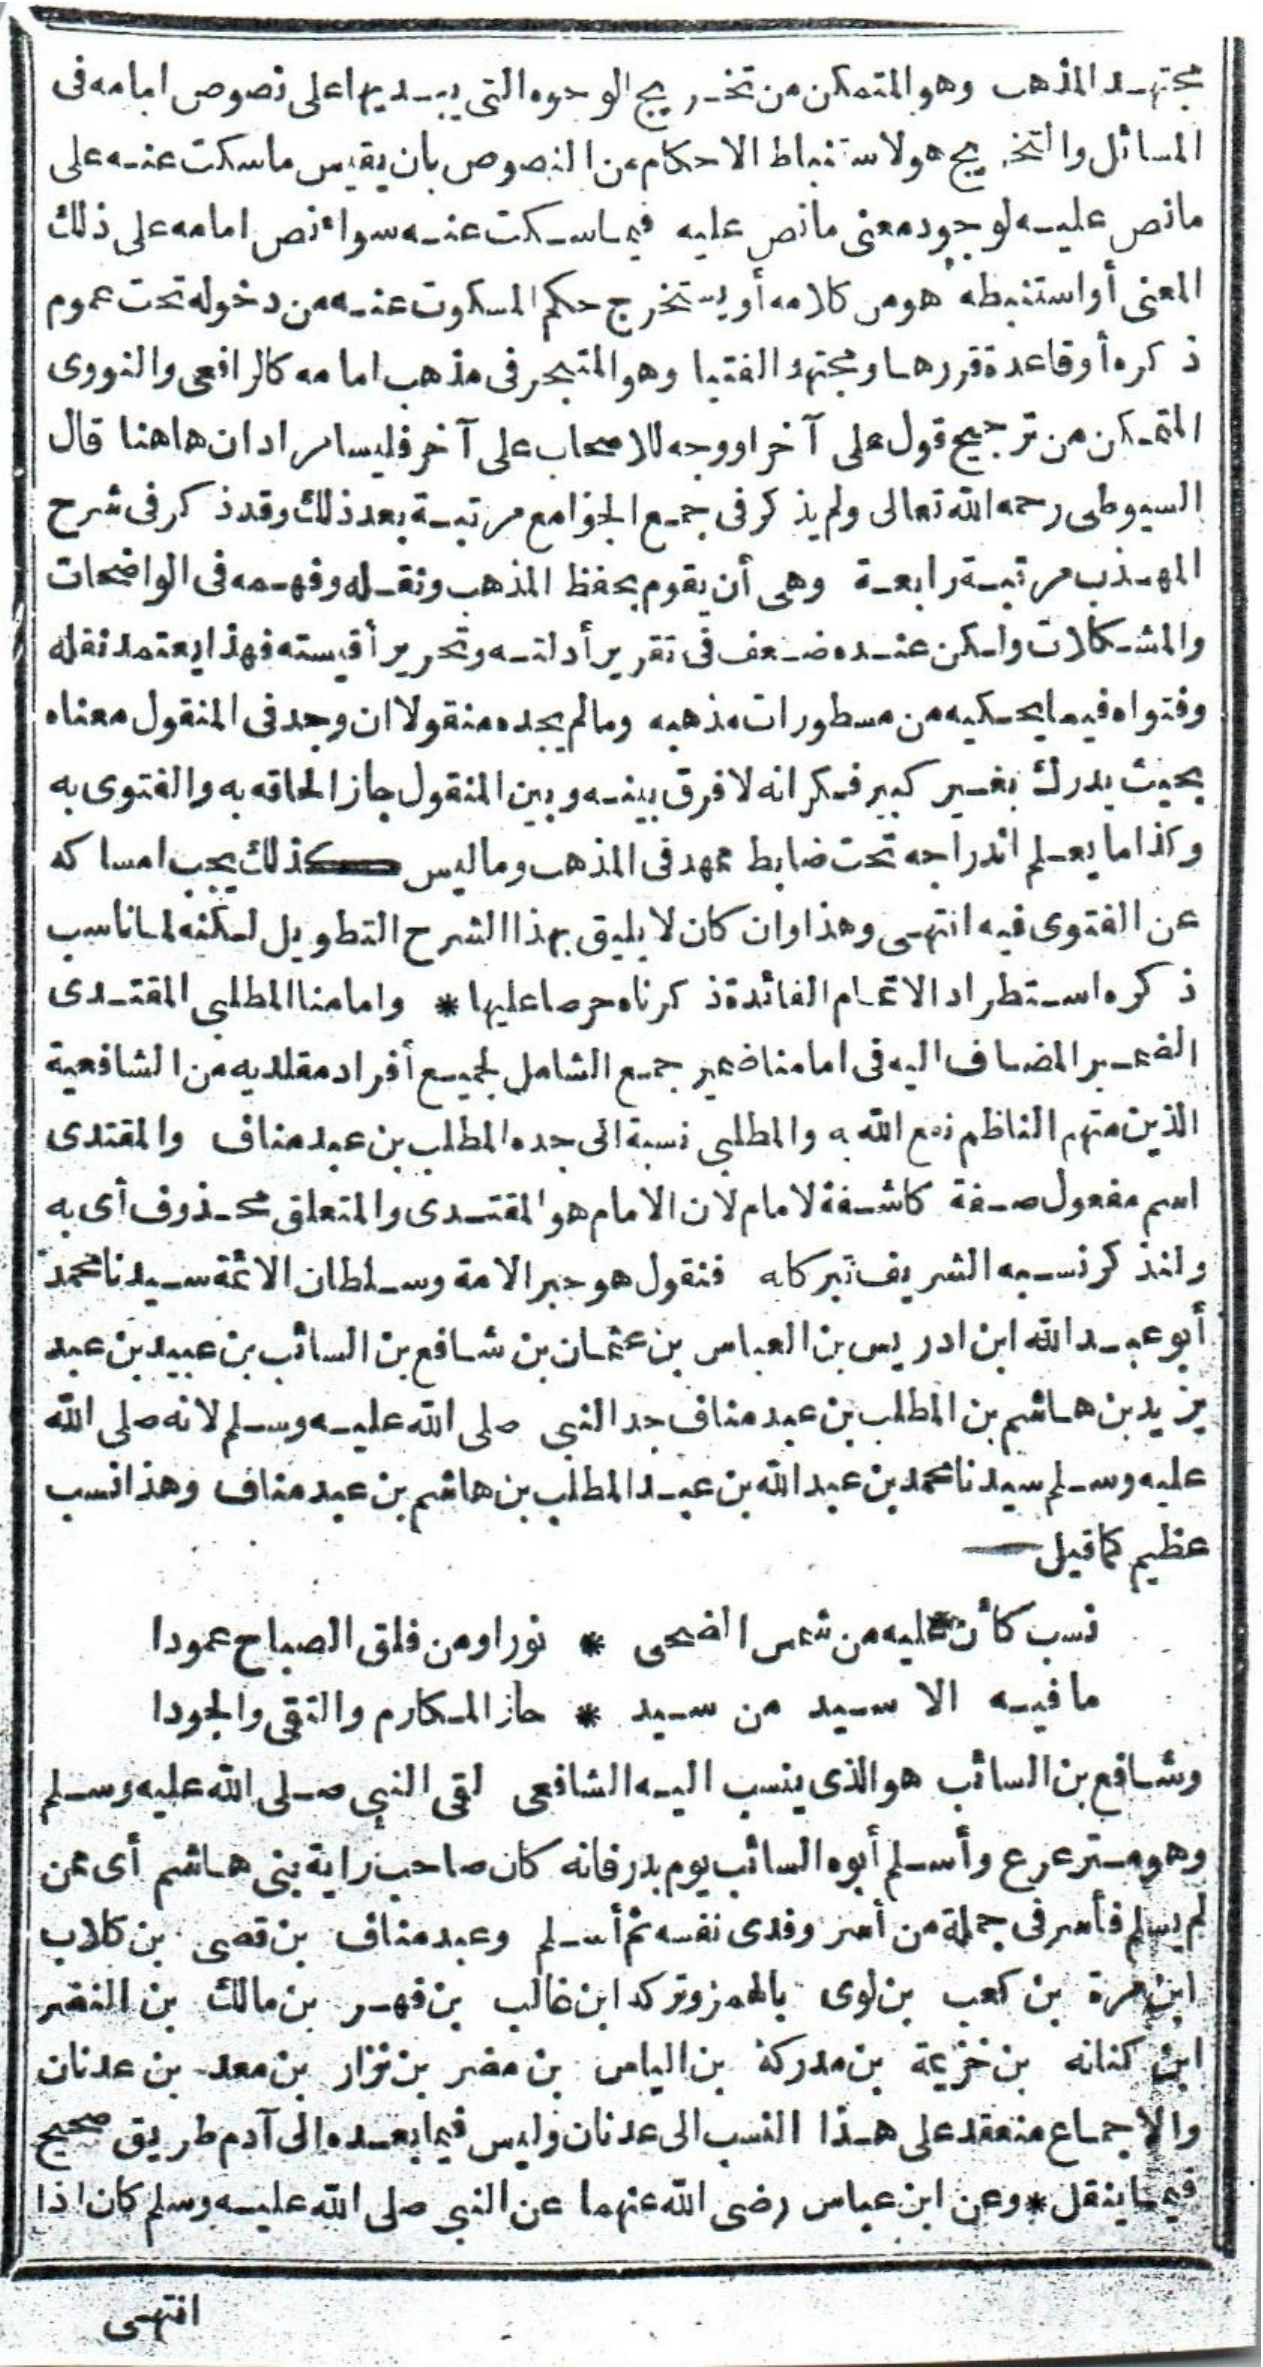 مجتهد المذهب وهو المتمكن من تخريج الوجوه التي يبديها على نصوص امامه فى
المسائل والتخريج هو لاستنباط الاحكام من النصوص بان يقيس ماسكت عنه على
مانص عليه لوجود معنى مانص عليه فيما سكت عنه سواء نص امامه على ذلك
المعنى أو استنبطه هو من كلامه أو يستخرج حكم المسكوت عنه من دخوله تحت عموم
ذكره أو قاعدة قررها ومجتهد الفتيا وهو المتبحر فى مذهب امامه كالرافعى والنووى
المتمكن من ترجيح قول على آخر او وجه للاصحاب على آخر فليسا مرادان هاهنا قال
السيوطى رحمه الله تعالى ولم يذكر فى جمع الجوامع مرتبة بعد ذلك وقد ذكر فى شرح
المهذب مرتبة رابعة وهى أن يقوم بحفظ المذهب ونقله وفهمه فى الواضحات
والمشكلات ولكن عنده ضعف فى تقرير أدلته وتحرير أقيسته فهذا يعتمد نقله
وفتواه فيما يحكيه من مسطورات مذهبه ومالم يجده منقولا ان وجد فى المنقول معناه
بحيث يدرك بغير كبير فكر انه لا فرق بينه وبين المنقول جاز الحاقه به والفتوى به
وكذا ما يعلم اندراجه تحت ضابط ممهد فى المذهب وما ليس كذلك يجب امساكه
عن الفتوى فيه انتهى وهذا وان كان لا يليق بهذا الشرح التطويل لكنه لما ناسب
ذكره استطراد الاتمام الفائدة ذكرناه حرصا عليها * وامامنا المطلبى المقتدى
الضمير المضاف اليه فى امامنا ضمير جمع الشامل لجميع أفراد مقلديه من الشافعية
الذين منهم الناظم نفع الله به والمطلبى نسبة الى جده المطلب بن عبد مناف والمقتدى
اسم مفعول صفة كاشفة لامام لان الامام هو المقتدى والمتعلق محذوف أى به
ولنذكر نسبه الشريف تبركا به فنقول هو حبر الامة وسلطان الائمة سيدنا محمد
أبو عبد الله ابن ادريس بن العباس بن عثمان بن شافع بن السائب بن عبيد بن عبد
يزيد بن هاشم بن المطلب بن عبد مناف جد النبى صلى الله عليه وسلم لانه صلى الله
عليه وسلم سيدنا محمد بن عبد الله بن عبد المطلب بن هاشم بن عبد مناف وهذا نسب
عظيم كما قيل
نسب كأن عليه من شمس الضحى * نورا ومن فلق الصباح عمودا
ما فيه الا سيد من سيد * حاز المكارم والتقى والجودا
وشافع بن السائب هو الذى ينسب اليه الشافعى لقى النبى صلى الله عليه وسلم
وهو مترعرع وأسلم أبوه السائب يوم بدر فانه كان صاحب راية بنى هاشم أى ممن
لم يسلم فأسر فى جملة من أسر وفدى نفسه ثم أسلم وعبد مناف بن قصى بن كلاب
ابن مرة بن كعب بن لوى بالهمز وتركه ابن غالب بن فهر بن مالك بن النضر
ابن كنانه بن خزيمة بن مدركة بن الياس بن مضر بن نزار بن معد بن عدنان
والاجماع منعقد على هذا النسب الى عدنان وليس فيما بعده الى آدم طريق صحيح
فيما ينقل * وعن ابن عباس رضى الله عنهما عن النبى صلى الله عليه وسلم كان اذا
انتهى